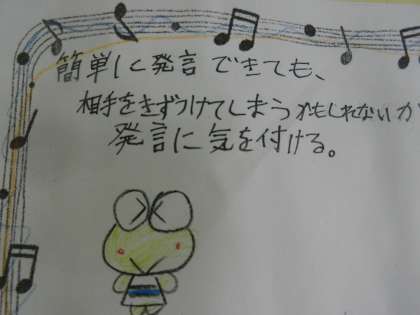 簡単に発言できても、
相手をきずつけてしまうかもしれないか
発言に気を付ける。